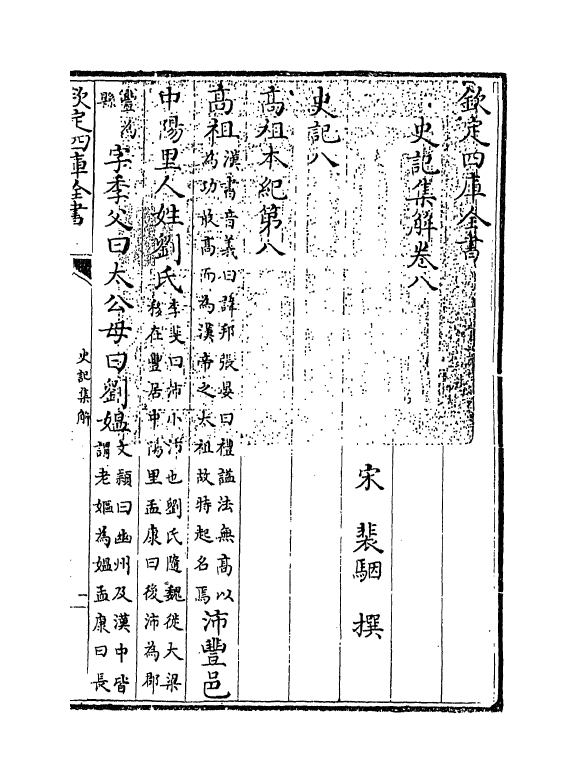 欽定四庫全書
史記集解卷八
宋 裴駰 撰
史記八
高祖本紀第八
高祖漢書音義曰諱邦張晏曰禮謚法無高以為功最高而為漢帝之太祖故特起名焉沛豐邑
中陽里人姓劉氏李斐曰沛小沛也劉氏隨魏徙大梁移在豐居中陽里孟康曰後沛為郡
豐為縣字季父曰太公母曰劉媼文穎曰幽州及漢中皆謂老嫗為媼孟康曰長
欽定四庫全書 史記集解 一